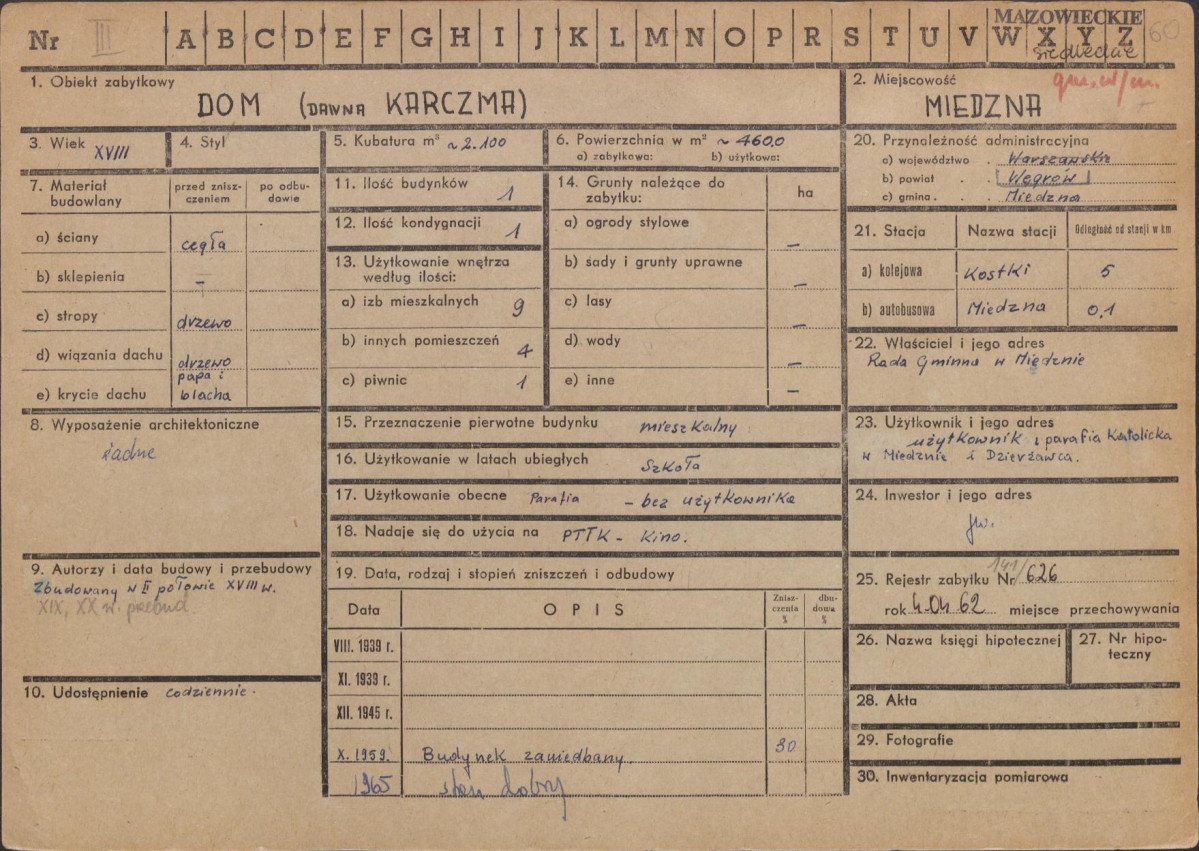 Nr III A B C D E F G H I J K L M N O P R S T U V W X Y Z 60
MAZOWIECKIE
siedleckie
1. Obiekt zabytkowy
DOM (DAWNA KARCZMA)
2. Miejscowość
gm. w/m.
MIEDZNA
3. Wiek XVIII
4. Styl
5. Kubatura m³ ~2.100
6. Powierzchnia w m² ~ 460,0
a) zabytkowa: b) użytkowa:
7. Materiał budowlany
przed zniszczeniem
po odbudowie
a) ściany cegła
b) sklepienia –
c) stropy drzewo
d) wiązania dachu drzewo
e) krycie dachu papa i blacha
8. Wyposażenie architektoniczne
żadne
9. Autorzy i data budowy i przebudowy
Zbudowany w II połowie XVIII w.
XIX, XX w. przebud.
10. Udostępnienie codziennie.
11. Ilość budynków 1
12. Ilość kondygnacji 1
13. Użytkowanie wnętrza
według ilości:
a) izb mieszkalnych 9
b) innych pomieszczeń 4
c) piwnic 1
14. Grunty należące do
zabytku: ha
a) ogrody stylowe –
b) sady i grunty uprawne –
c) lasy –
d) wody –
e) inne –
15. Przeznaczenie pierwotne budynku mieszkalny
16. Użytkowanie w latach ubiegłych Szkoła
17. Użytkowanie obecne Parafia – bez użytkownika
18. Nadaje się do użycia na PTTK - Kino.
19. Data, rodzaj i stopień zniszczeń i odbudowy
Data OPIS Zniszczenia % dbudowa %
VIII. 1939 r.
XI. 1939 r.
XII. 1945 r.
X. 1959. Budynek zaniedbany. 30
1965 stan dobry
20. Przynależność administracyjna
a) województwo . Warszawskie
b) powiat . . Węgrów
c) gmina . . Miedzna
21. Stacja Nazwa stacji Odległość od stacji w km
a) kolejowa Kostki 5
b) autobusowa Miedzna 0,1
22. Właściciel i jego adres
Rada Gminna w Miedznie
23. Użytkownik i jego adres
użytkownik: parafia Katolicka
w Miedznie i Dzierżawca.
24. Inwestor i jego adres
jw.
25. Rejestr zabytku Nr 141/626
rok 4.04.62 miejsce przechowywania
26. Nazwa księgi hipotecznej
27. Nr hipoteczny
28. Akta
29. Fotografie
30. Inwentaryzacja pomiarowa